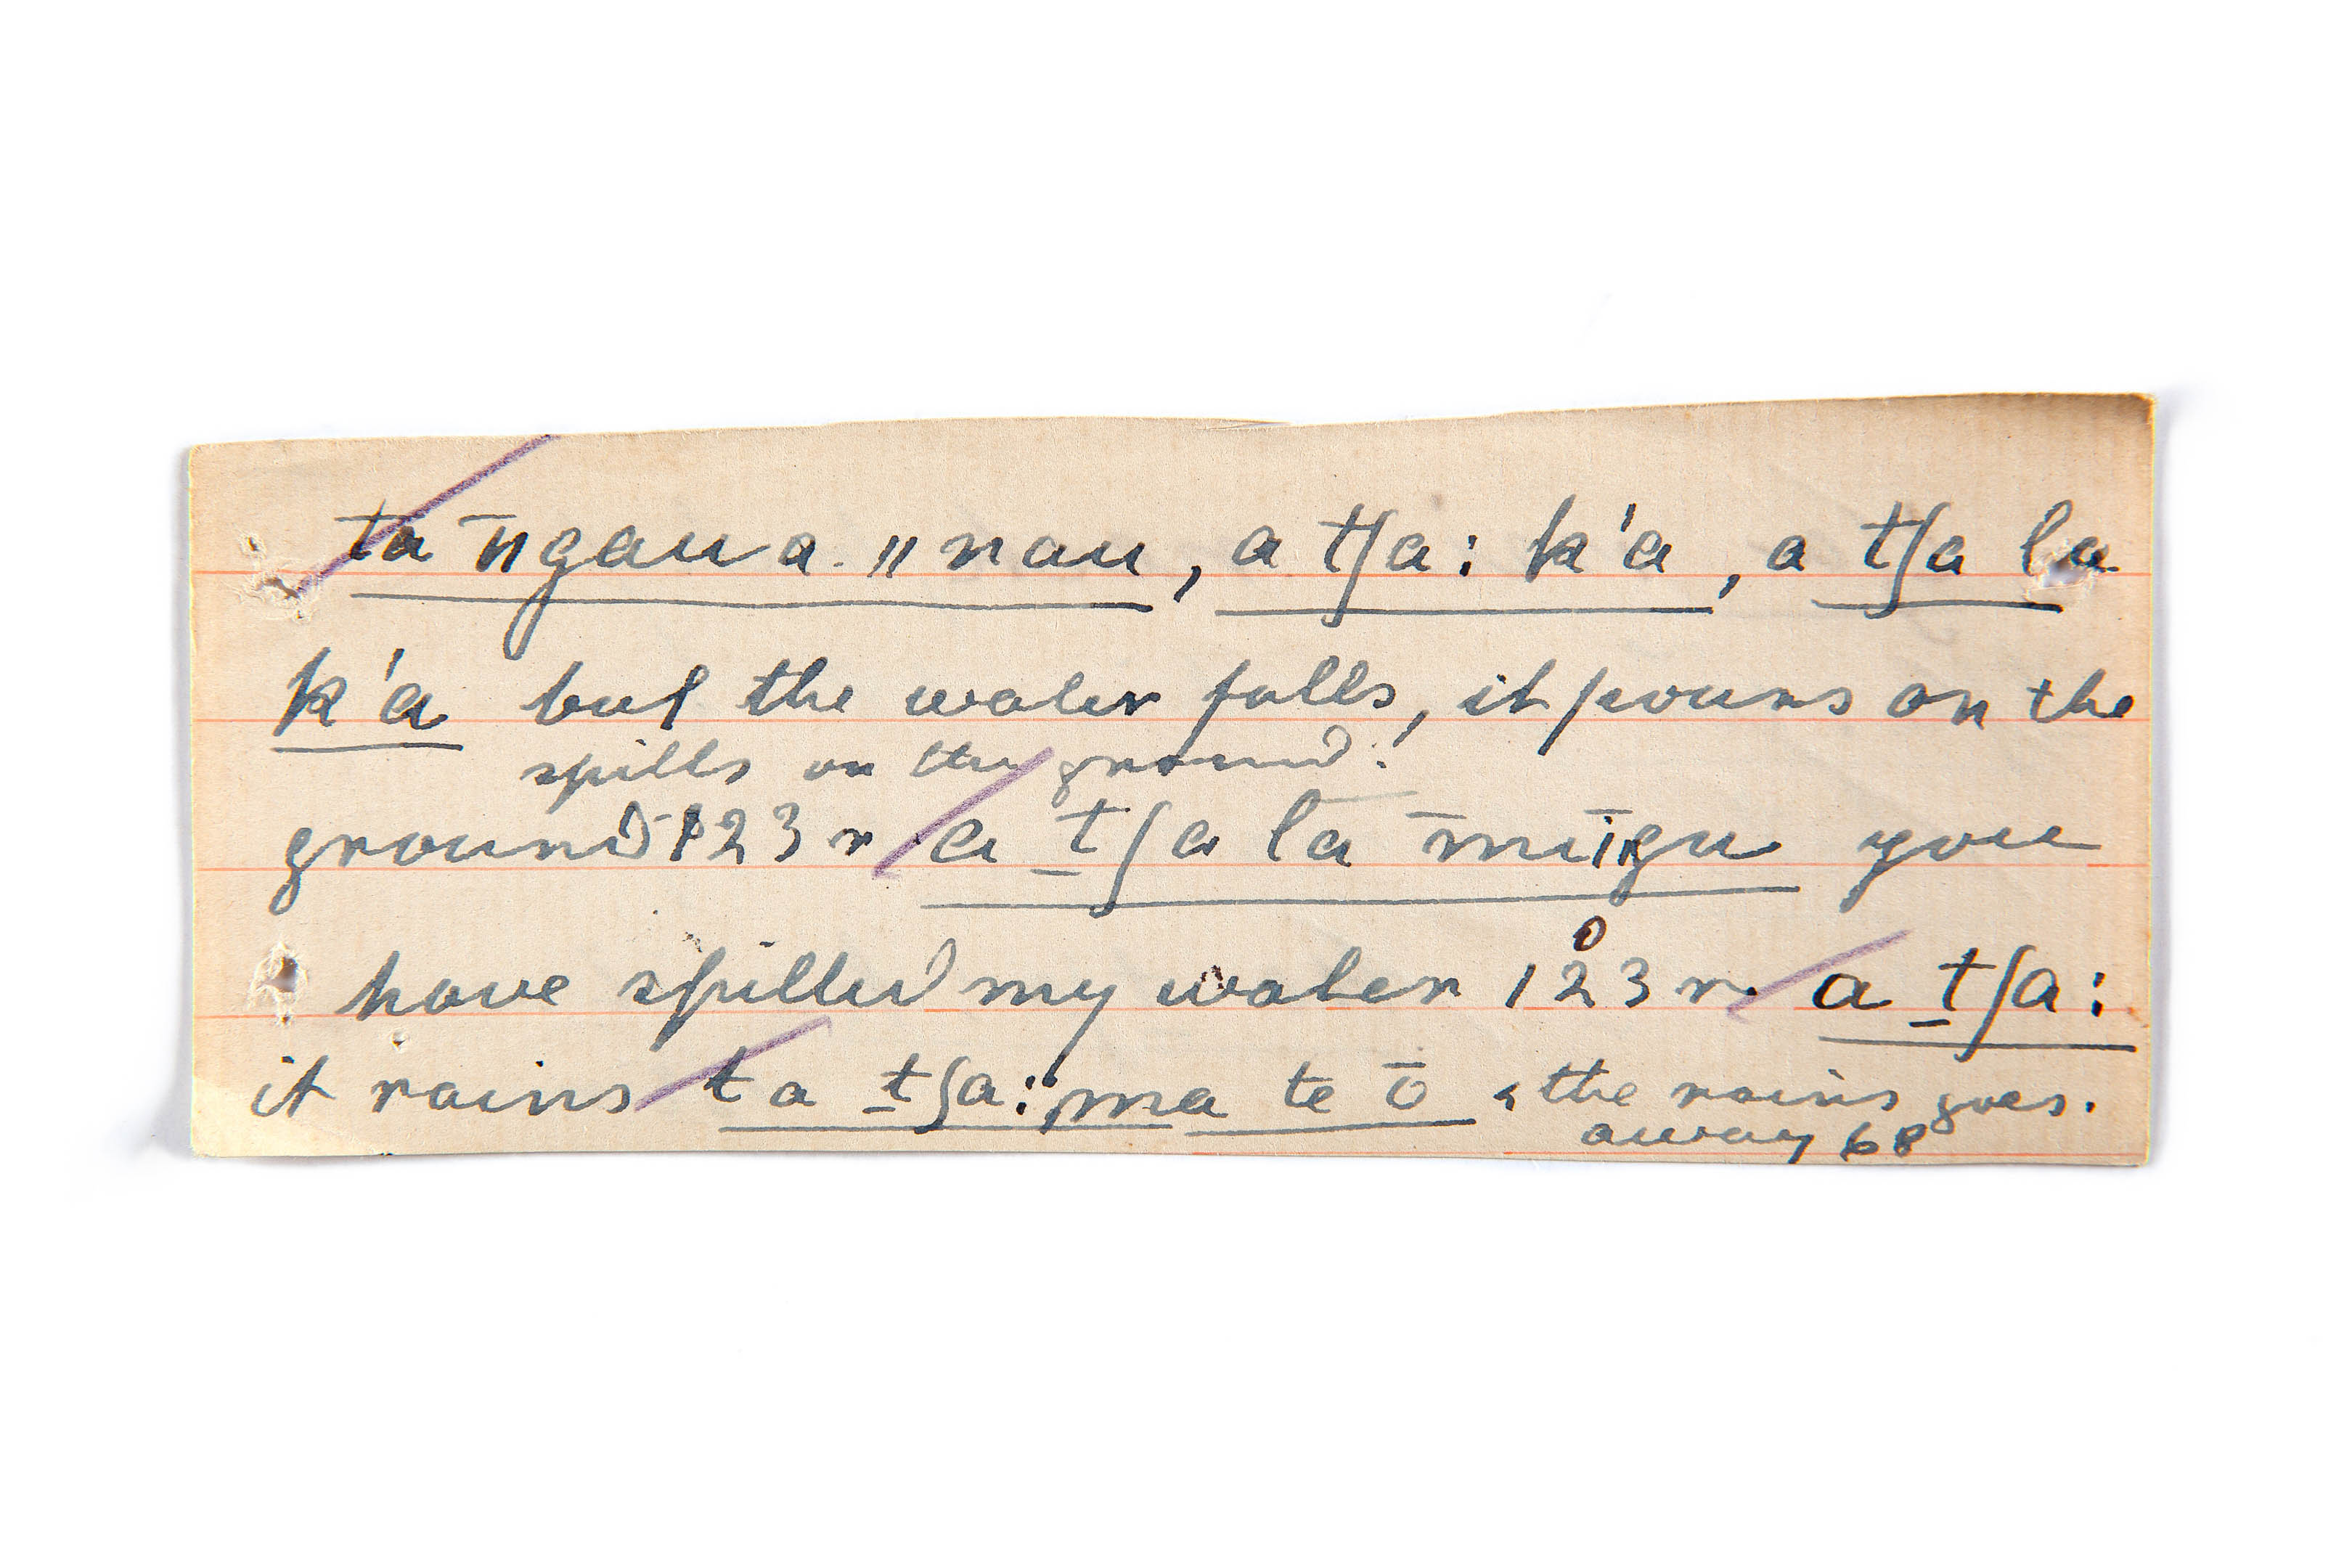 ta n̄gau a. ॥ nau, a tʃa: k'a, a tʃa la
k'a but the water falls, it pours on the
spills on the ground.
ground 123 r a t̠ʃa la m̄ūgu you
0
have spilled my water 123 r. a t̠ʃa:
it rains ta t̠ʃa: ma te ō, the rains goes.
away 68